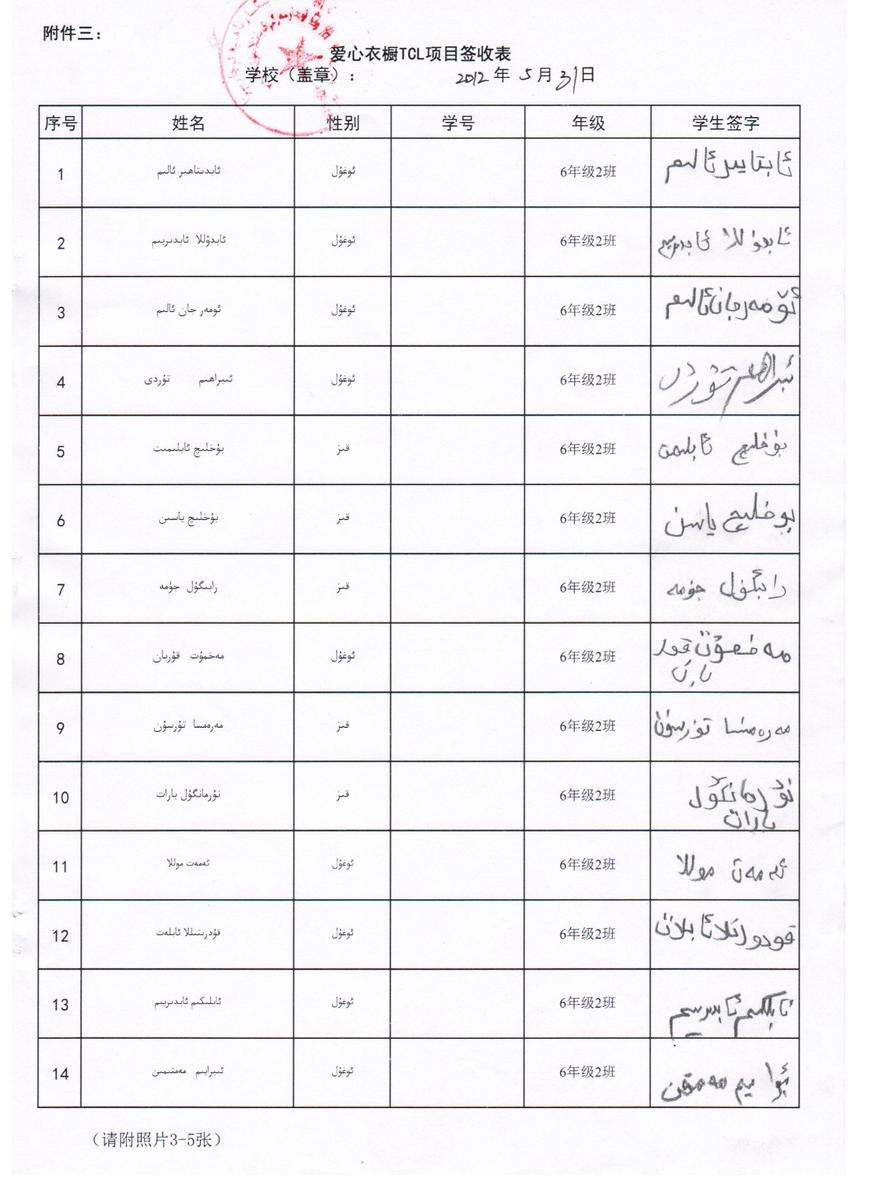 附件三：
爱心衣橱TCL项目签收表
学校（盖章）： 2012年5月31日
序号 姓名 性别 学号 年级 学生签字
1 ئابدىتاھىر ئالىم ئوغۇل 6年级2班 ئابتايىر ئالىم
2 ئابدۇللا ئابدىرىيىم ئوغۇل 6年级2班 ئابدۇللا ئابدىرىيىم
3 ئومەر جان ئالىم ئوغۇل 6年级2班 ئۆمەرجان ئالىم
4 ئىبراھىم تۇردى ئوغۇل 6年级2班 ئىبراھىم تۇردى
5 بۇخلىچ ئابلىمىت قىز 6年级2班 بۇخلىچ ئابلىمىت
6 بۇخلىچ ياسىن قىز 6年级2班 بوخلىچ ياسىن
7 رابىگۇل جۈمە قىز 6年级2班 رابىگۇل جۈمە
8 مەخمۇت قۇربان ئوغۇل 6年级2班
9 مەرەمسا تۇرسۇن قىز 6年级2班 مەرەمسا تۇرسۇن
10 نۇرمانگۇل بارات قىز 6年级2班 نۇرمانگۇل
بارات
11 ئەمەت موللا ئوغۇل 6年级2班 ئەمەت موللا
12 قۇدرىتىللا ئابلەت ئوغۇل 6年级2班
13 ئابلىكىم ئابدىرىيىم ئوغۇل 6年级2班 ئابلىكىم
14 ئىبرايىم مەمتىمىن ئوغۇل 6年级2班
（请附照片3-5张）